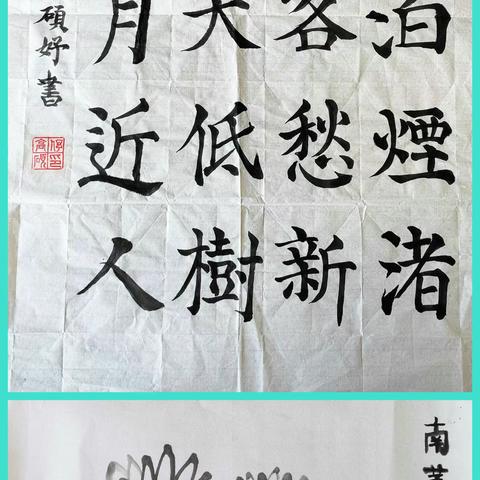 泊煙渚
客愁新
天低樹
月近人
碩妤書
南